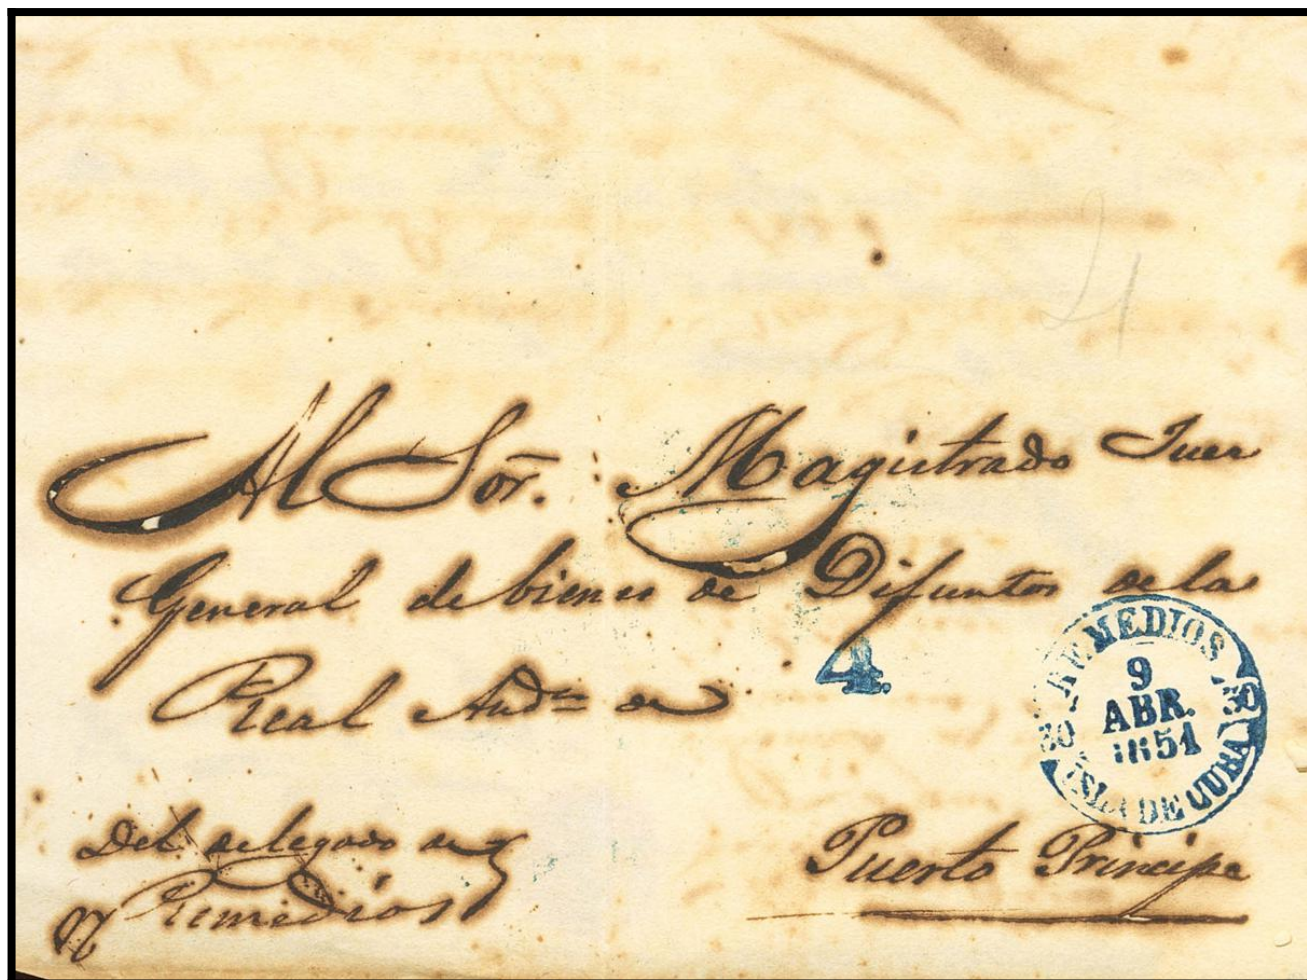 Al Sor. Magistrado Juez
General de bienes de Difuntos de la
Real Auda. de
4.
REMEDIOS
30 30
9
ABR.
1851
ISLA DE CUBA
Del delegado de
Remedios
Puerto Principe